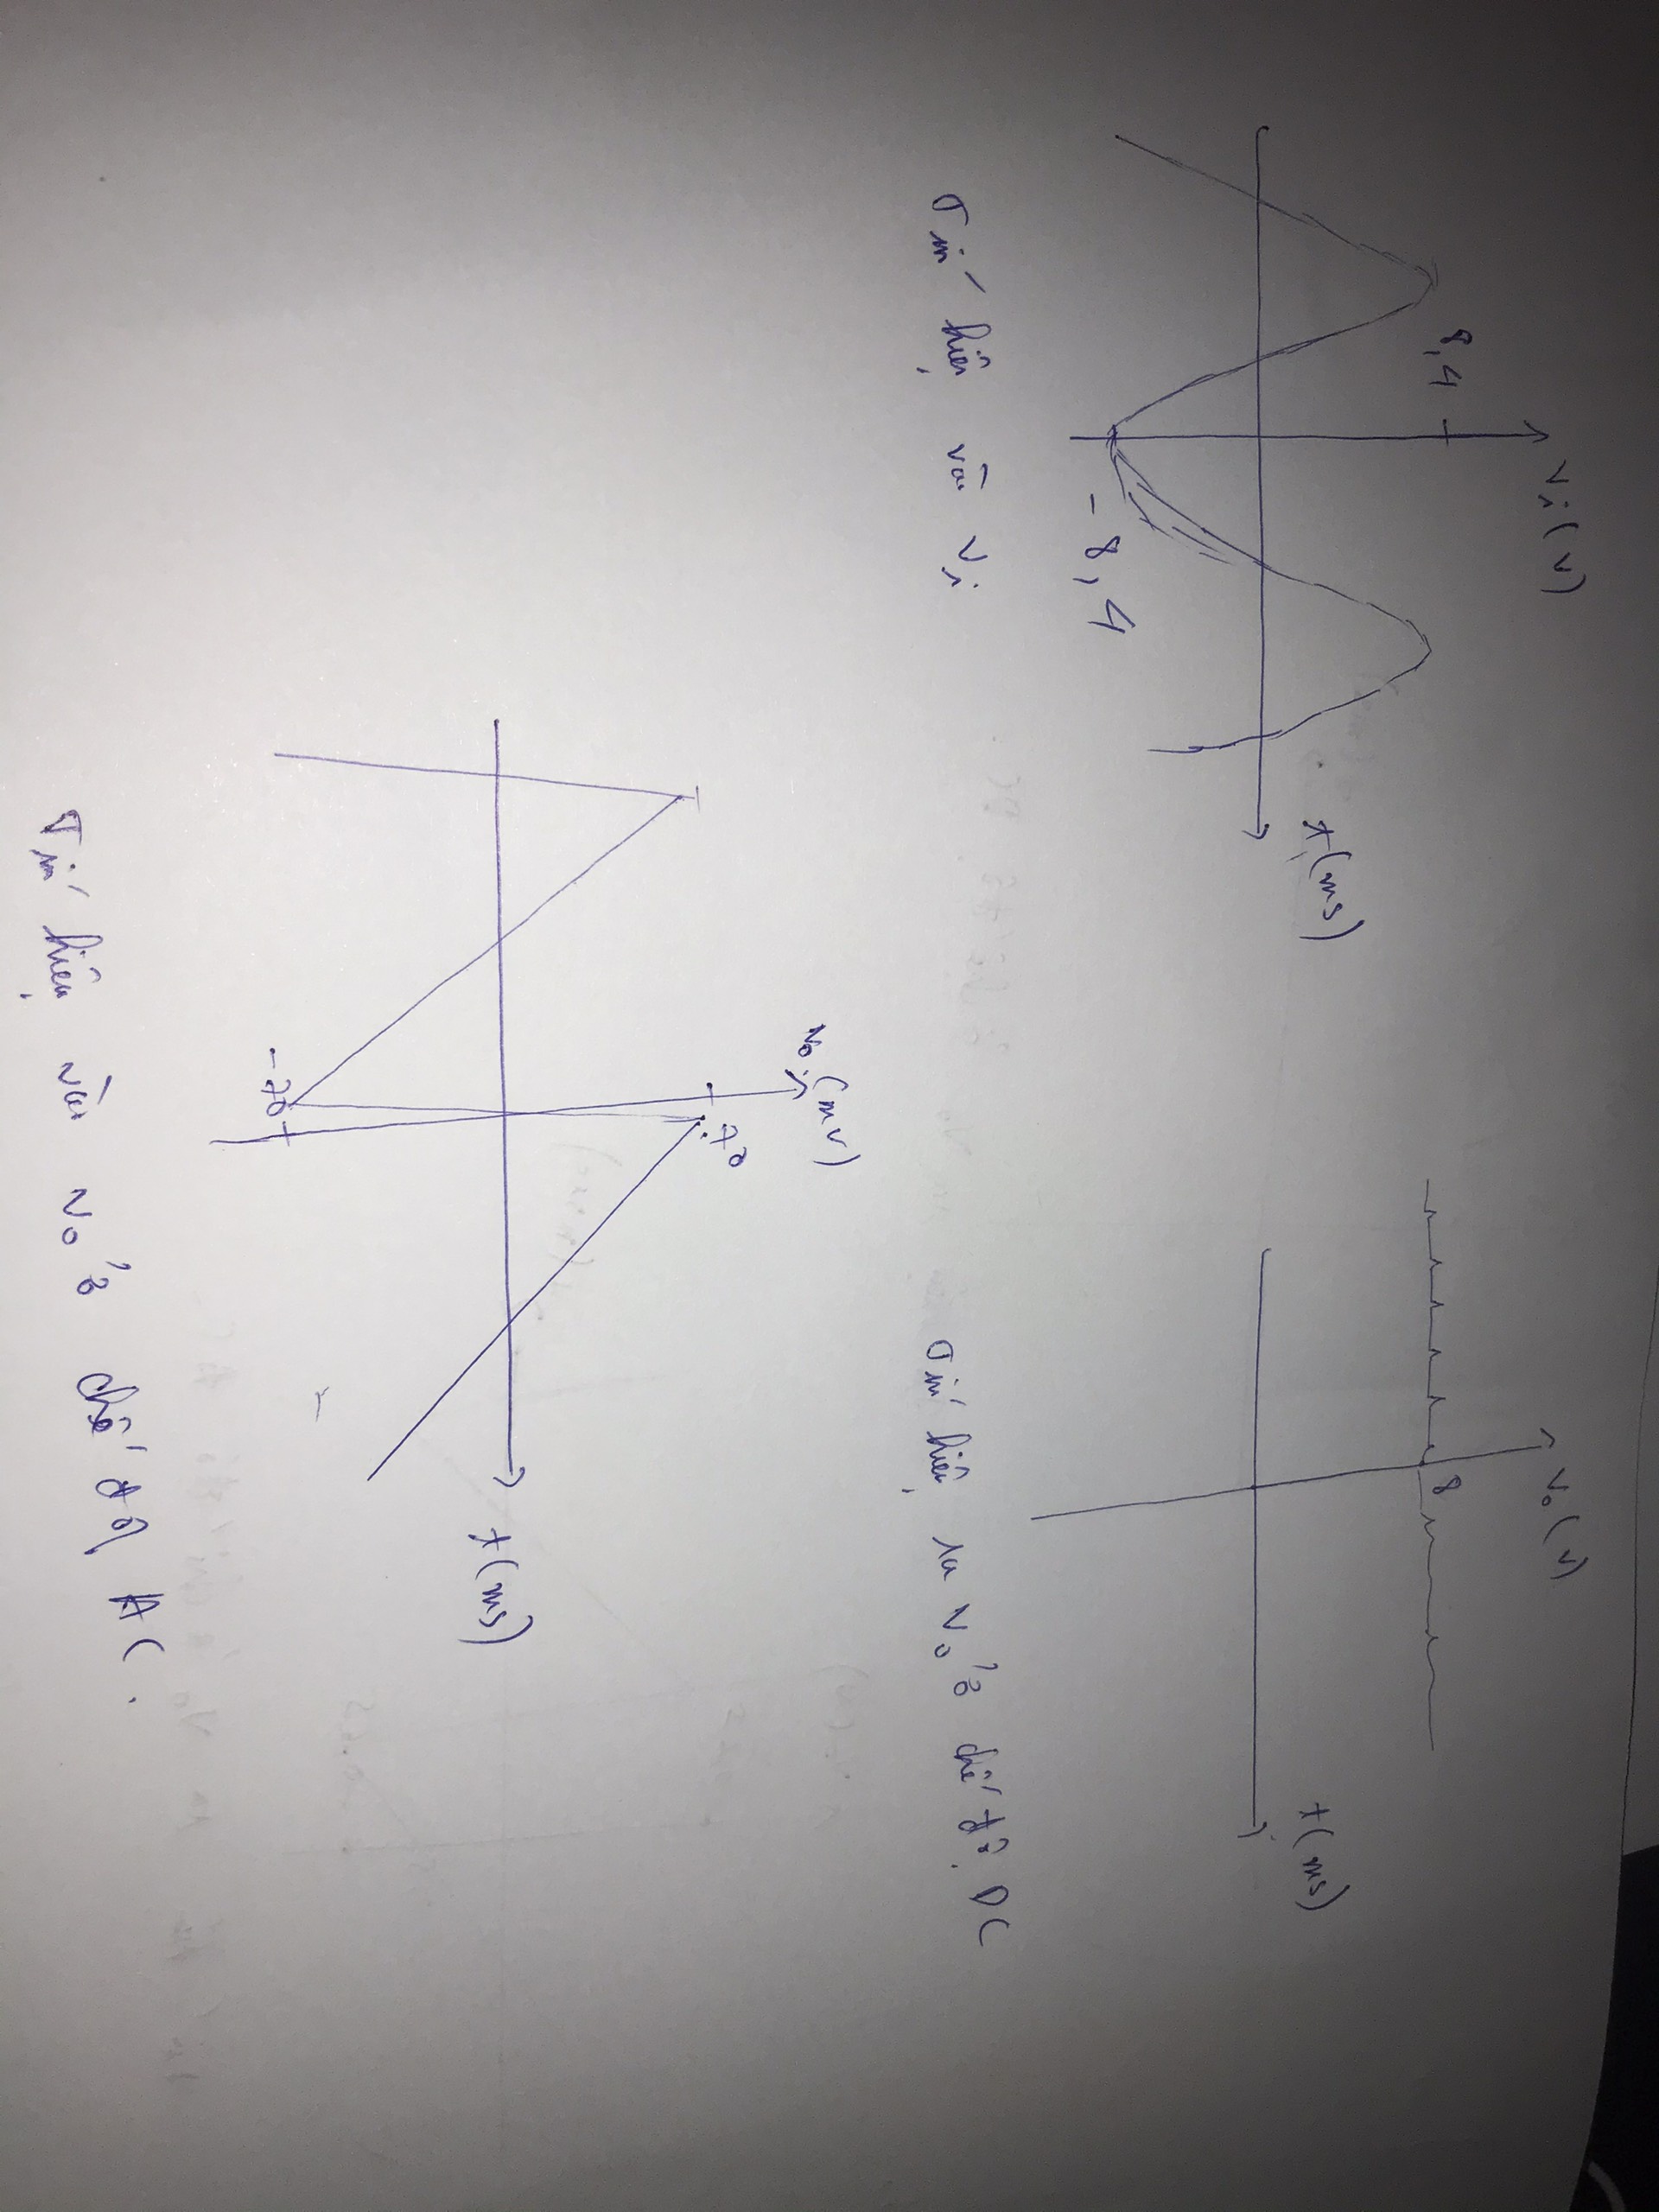 Vi (V)
8,4
t (ms)
- 8,4
Tín hiệu vào Vi
Vo (V)
8
t (ms)
Tín hiệu ra Vo ở chế độ DC
Vo (mV)
70
t (ms)
- 70
Tín hiệu vào Vo ở chế độ AC.